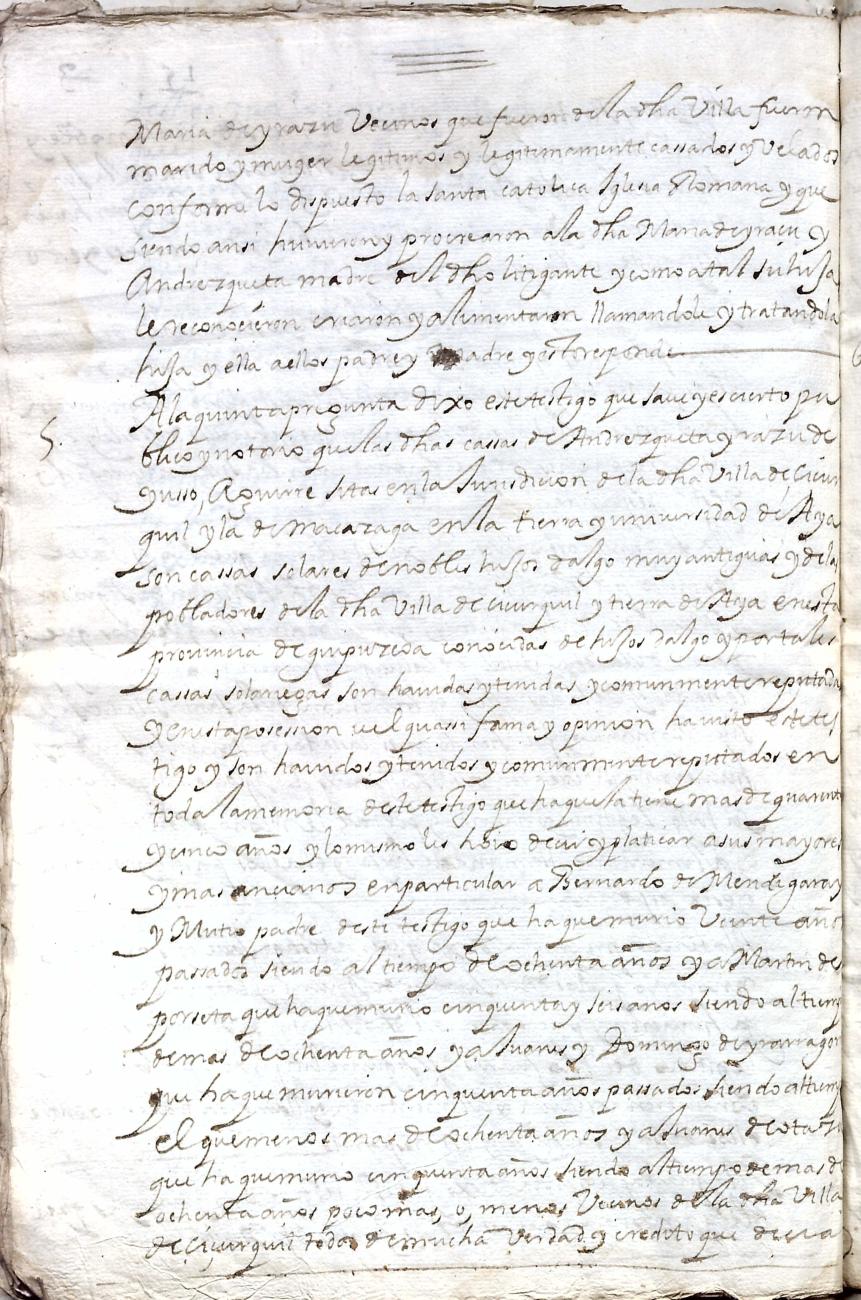 Maria de yrazu Vecinos que fueron de la dha Villa fueron
marido y muger legitimos y legitimamente cassados y Velados
conforme lo dispuesto la santa catolica Iglesia Romana y que
siendo ansi huvieron y procrearon a la dha Maria de yraçu y
Andrezqueta madre del dho litigante y como a tal su hija
le reconocieron criaron y alimentaron llamandole y tratandola
hija y ella a ellos padre y madre y esto responde
5. A la quinta pregunta dixo este testigo que save y es cierto pu
blico y notorio que las dhas cassas de Andrezqueta yrazu de
yusso, Aguirre sitas en la Jurisdicion de la dha Villa de Cicur
quil y la de macazaga en la tierra y universidad de Aya
son cassas solares de nobles hijos dalgo muy antiguas y de los
pobladores de la dha Villa de cicurquil y tierra de Aya en esta
provincia de guipuzcoa conocidas de hijos dalgo y por tales
cassas solariegas son havidas y tenidas y comunmente reputadas
y en esta posession vel quassi fama y opinion ha visto este tes
tigo y son havidos y tenidos y comunmente reputados en
toda la memoria deste testigo que ha que la tiene mas de quarenta
y cinco años y lo mismo les hoio decir y platicar a sus mayores
y mas ancianos en particular a Bernardo de Mendigaray
y Mutio padre deste testigo que ha que murio Veinte años
passados siendo al tiempo de ochenta años y a Martin de
porseta que ha que murio cinquenta y seis anos siendo al tiempo
de mas de ochenta años y a Juanes y Domingo de yrarragorri
que ha que murieron cinquenta años passados siendo al tiempo
el que menos mas de ochenta años y a Juanes de
que ha que murio cinquenta años siendo al tiempo de mas de
ochenta años poco mas, o, menos Vecinos de la dha Villa
de Ciçurquil todos de mucha Verdad y credito que decia